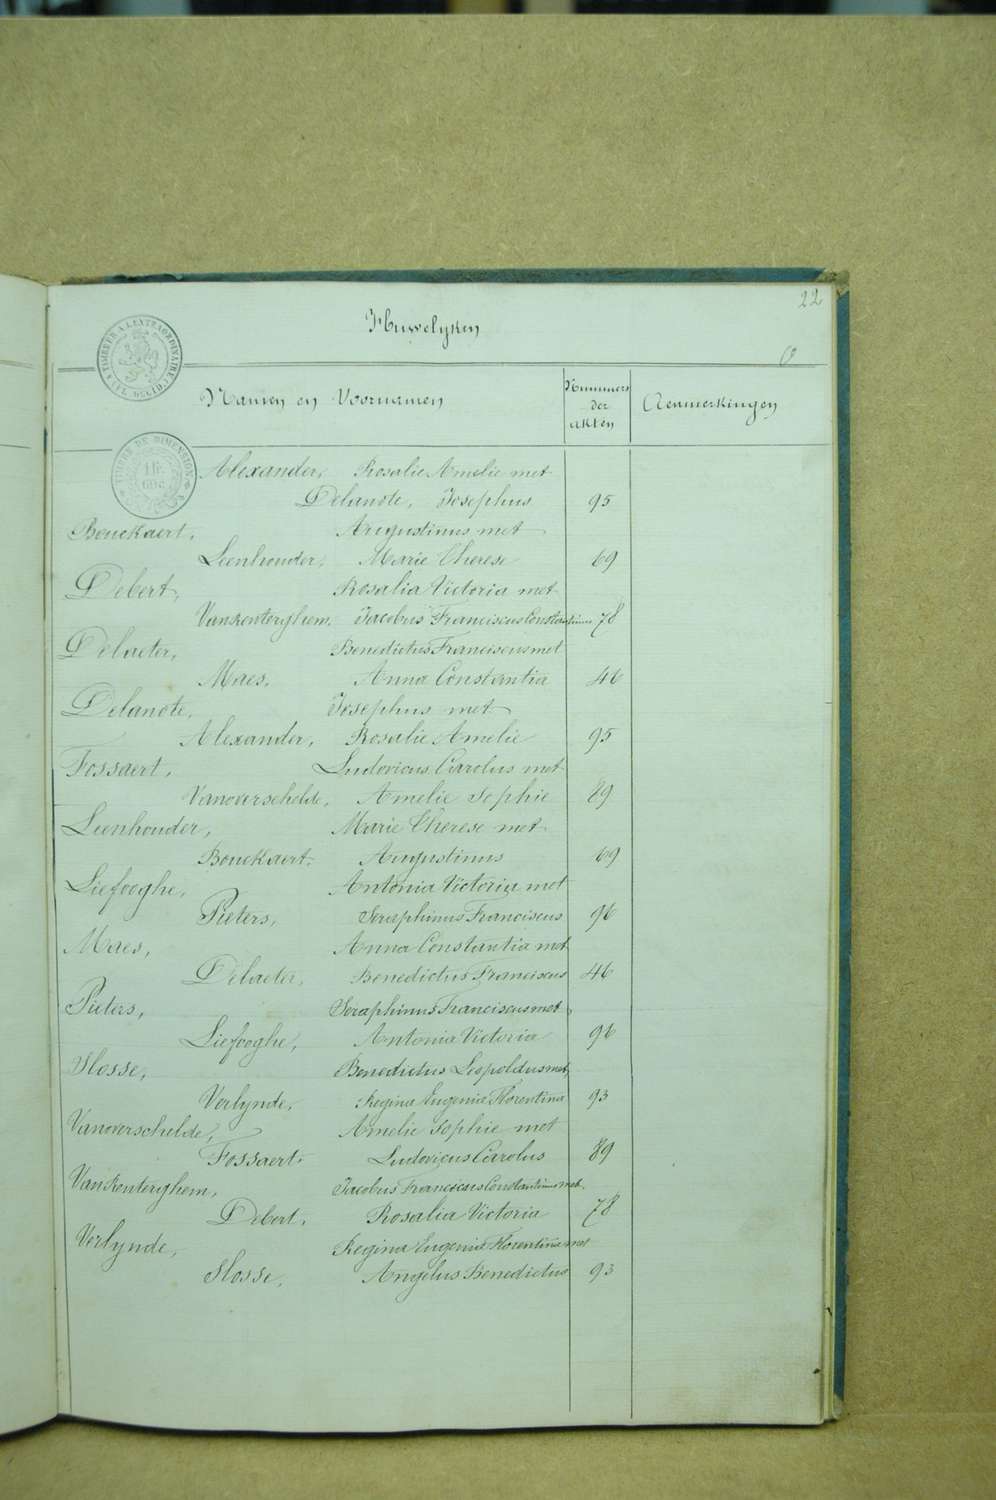 22
Huwelijken
Namen en Voornamen
Nummers
der
akten
Aenmerkingen
TIMBRE DE DIMENSION
Alexander, Rosalie Amelie met
Delanote, Josephus 95
Bouckaert, Augustinus met
Leenhouder, Marie Therese 69
Debert, Rosalia Victoria met
Vankenteryhem, Jacobus Franciscus Constantinus 78
Delaeter, Benedictus Franciscus met
Maes, Anna Constantia 46
Delanote, Josephus met
Alexander, Rosalie Amelie 95
Fossaert, Ludovicus Carolus met
Vanoverschelde, Amelie Sophie 89
Leenhouder, Marie Therese met
Bouckaert, Augustinus 69
Liefooghe, Antonia Victoria met
Pieters, Seraphinus Franciscus 96
Maes, Anna Constantia met
Delaeter, Benedictus Franciscus 46
Pieters, Seraphinus Franciscus met
Liefooghe, Antonia Victoria 96
Slosse, Benedictus Leopoldus met
Verlynde, Regina Eugenia Florentina 93
Vanoverschelde, Amelie Sophie met
Fossaert, Ludovicus Carolus 89
Vankenteryhem, Jacobus Franciscus Constantinus met
Debert, Rosalia Victoria 78
Verlynde, Regina Eugenia Florentina met
Slosse, Angelus Benedictus 93